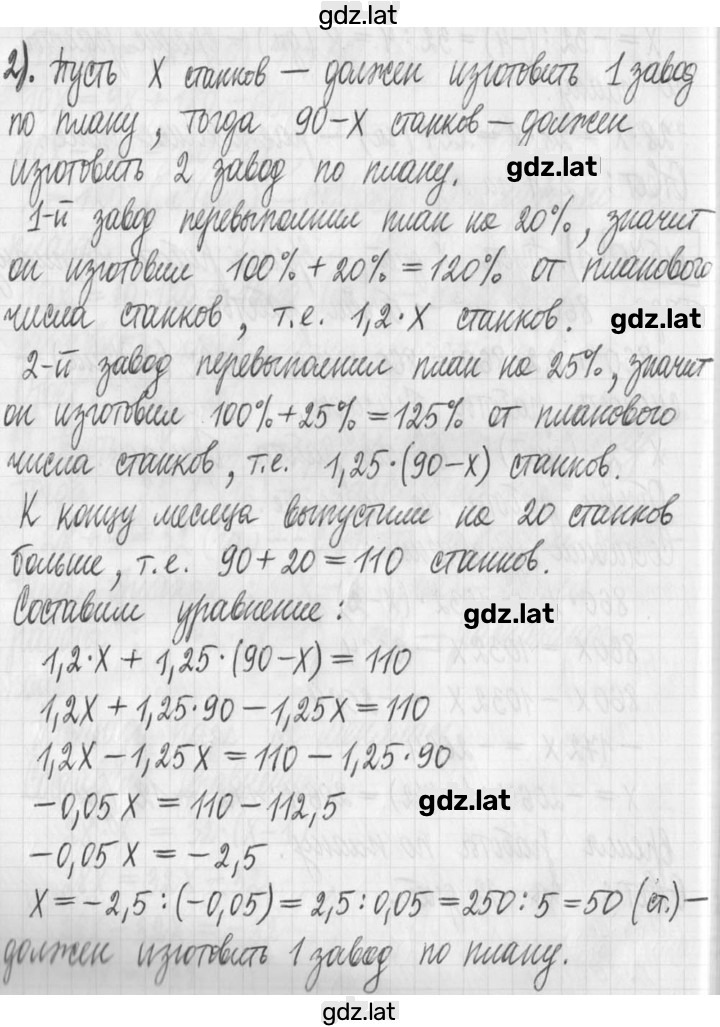 gdz.lat
2). Пусть х станков — должен изготовить 1 завод
по плану, тогда 90-х станков — должен
изготовить 2 завод по плану. gdz.lat
1-й завод перевыполнил план на 20%, значит
он изготовил 100% + 20% = 120% от планового
числа станков, т.е. 1,2·х станков. gdz.lat
2-й завод перевыполнил план на 25%, значит
он изготовил 100%+25% = 125% от планового
числа станков, т.е. 1,25·(90-х) станков.
К концу месяца выпустили на 20 станков
больше, т.е. 90+20 = 110 станков.
Составим уравнение: gdz.lat
1,2·х + 1,25·(90-х) = 110
1,2х + 1,25·90 - 1,25х = 110
1,2х - 1,25х = 110 - 1,25·90
-0,05х = 110 - 112,5 gdz.lat
-0,05х = -2,5
х = -2,5 : (-0,05) = 2,5 : 0,05 = 250 : 5 = 50 (ст.) —
должен изготовить 1 завод по плану.
gdz.lat